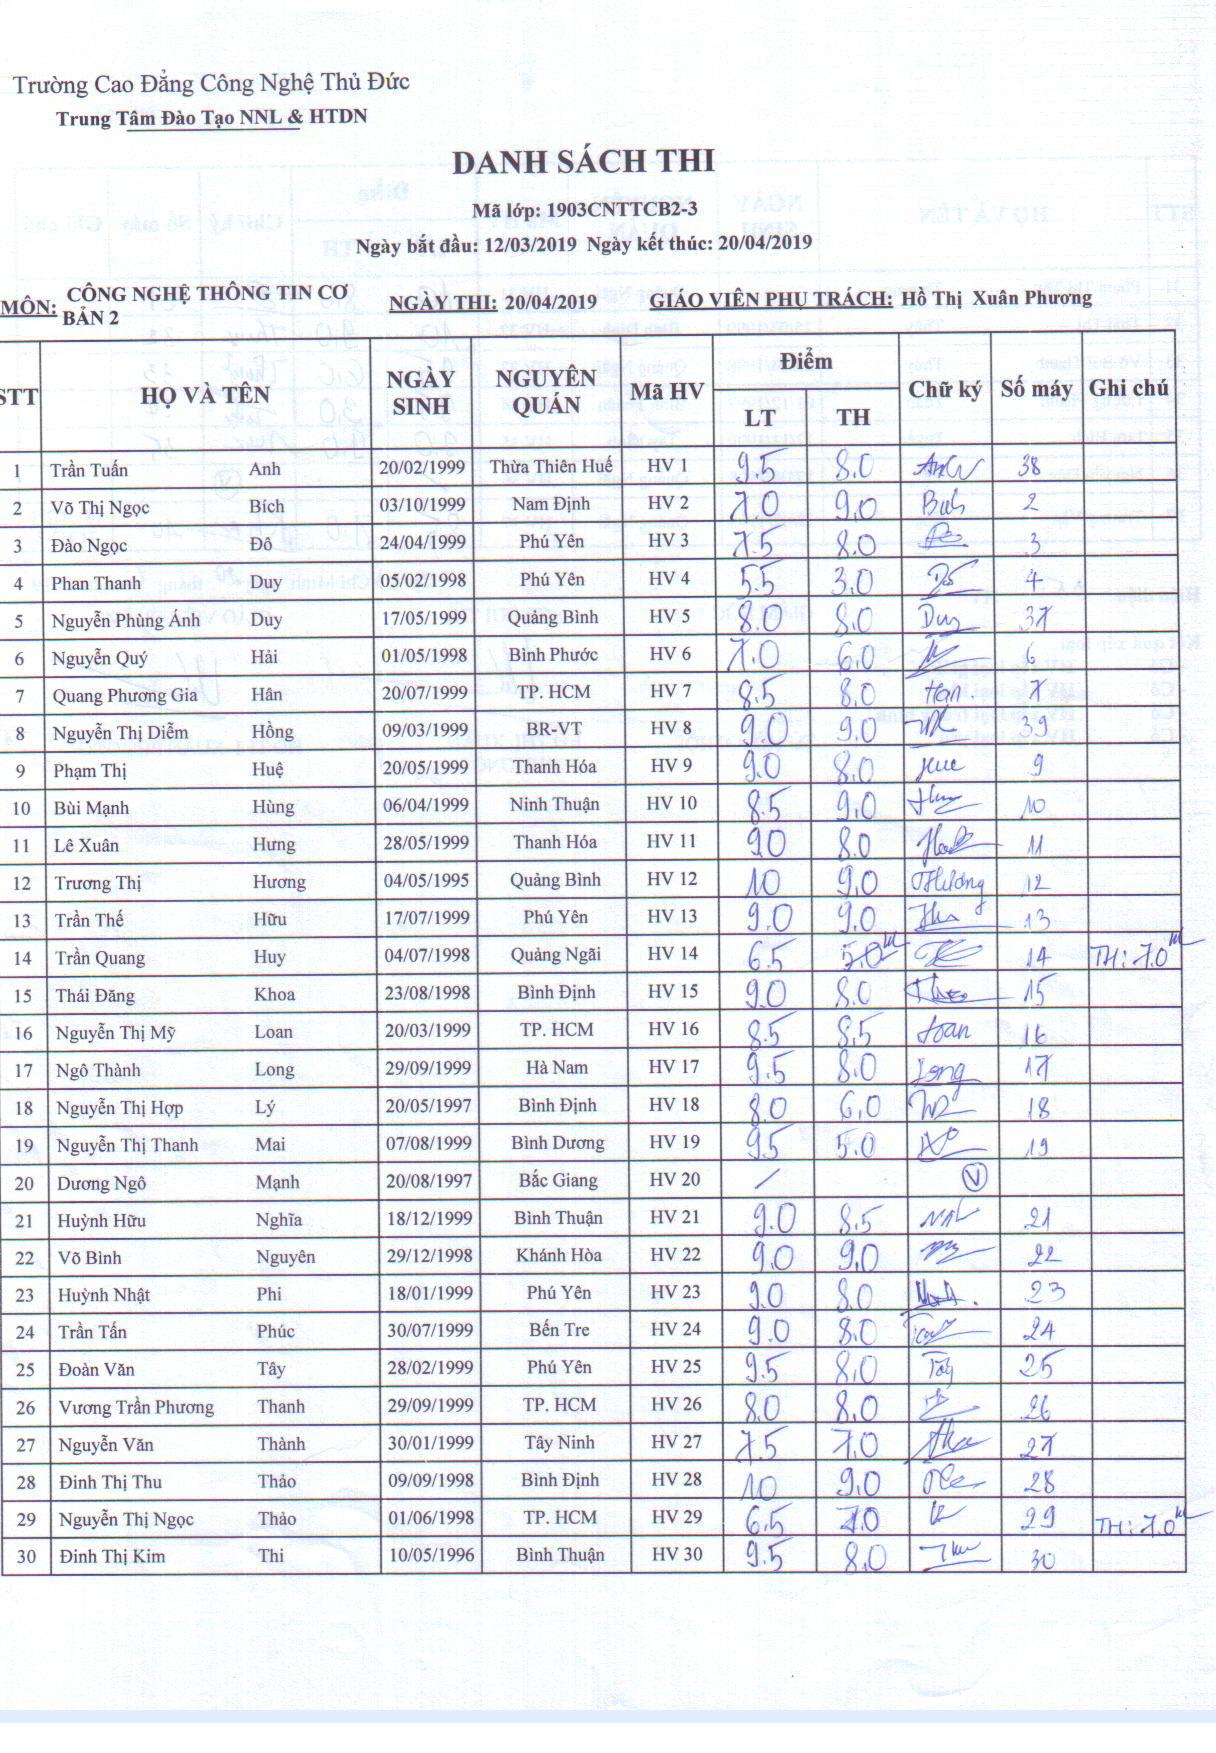 Trường Cao Đẳng Công Nghệ Thủ Đức
Trung Tâm Đào Tạo NNL & HTDN
DANH SÁCH THI
Mã lớp: 1903CNTTCB2-3
Ngày bắt đầu: 12/03/2019 Ngày kết thúc: 20/04/2019
MÔN: CÔNG NGHỆ THÔNG TIN CƠ BẢN 2 NGÀY THI: 20/04/2019 GIÁO VIÊN PHỤ TRÁCH: Hồ Thị Xuân Phương
STT HỌ VÀ TÊN NGÀY SINH NGUYÊN QUÁN Mã HV Điểm LT TH Chữ ký Số máy Ghi chú
1 Trần Tuấn Anh 20/02/1999 Thừa Thiên Huế HV 1 9.5 8.0 38
2 Võ Thị Ngọc Bích 03/10/1999 Nam Định HV 2 7.0 9.0 2
3 Đào Ngọc Đô 24/04/1999 Phú Yên HV 3 7.5 8.0 3
4 Phan Thanh Duy 05/02/1998 Phú Yên HV 4 5.5 3.0 4
5 Nguyễn Phùng Ánh Duy 17/05/1999 Quảng Bình HV 5 8.0 8.0 Duy 37
6 Nguyễn Quý Hải 01/05/1998 Bình Phước HV 6 7.0 6.0 6
7 Quang Phương Gia Hân 20/07/1999 TP. HCM HV 7 8.5 8.0 Hân 7
8 Nguyễn Thị Diễm Hồng 09/03/1999 BR-VT HV 8 9.0 9.0 39
9 Phạm Thị Huệ 20/05/1999 Thanh Hóa HV 9 9.0 8.0 Huệ 9
10 Bùi Mạnh Hùng 06/04/1999 Ninh Thuận HV 10 8.5 9.0 10
11 Lê Xuân Hưng 28/05/1999 Thanh Hóa HV 11 9.0 8.0 11
12 Trương Thị Hương 04/05/1995 Quảng Bình HV 12 10 9.0 THương 12
13 Trần Thế Hữu 17/07/1999 Phú Yên HV 13 9.0 9.0 13
14 Trần Quang Huy 04/07/1998 Quảng Ngãi HV 14 6.5 5.0 14 TH: 7.0
15 Thái Đăng Khoa 23/08/1998 Bình Định HV 15 9.0 8.0 15
16 Nguyễn Thị Mỹ Loan 20/03/1999 TP. HCM HV 16 8.5 8.5 Loan 16
17 Ngô Thành Long 29/09/1999 Hà Nam HV 17 9.5 8.0 Long 17
18 Nguyễn Thị Hợp Lý 20/05/1997 Bình Định HV 18 8.0 6.0 18
19 Nguyễn Thị Thanh Mai 07/08/1999 Bình Dương HV 19 9.5 5.0 19
20 Dương Ngô Mạnh 20/08/1997 Bắc Giang HV 20 / V
21 Huỳnh Hữu Nghĩa 18/12/1999 Bình Thuận HV 21 9.0 8.5 21
22 Võ Bình Nguyên 29/12/1998 Khánh Hòa HV 22 9.0 9.0 22
23 Huỳnh Nhật Phi 18/01/1999 Phú Yên HV 23 9.0 8.0 23
24 Trần Tấn Phúc 30/07/1999 Bến Tre HV 24 9.0 8.0 24
25 Đoàn Văn Tây 28/02/1999 Phú Yên HV 25 9.5 8.0 Tây 25
26 Vương Trần Phương Thanh 29/09/1999 TP. HCM HV 26 8.0 8.0 26
27 Nguyễn Văn Thành 30/01/1999 Tây Ninh HV 27 7.5 7.0 27
28 Đinh Thị Thu Thảo 09/09/1998 Bình Định HV 28 10 9.0 28
29 Nguyễn Thị Ngọc Thảo 01/06/1998 TP. HCM HV 29 6.5 7.0 29 TH: 7.0
30 Đinh Thị Kim Thi 10/05/1996 Bình Thuận HV 30 9.5 8.0 30